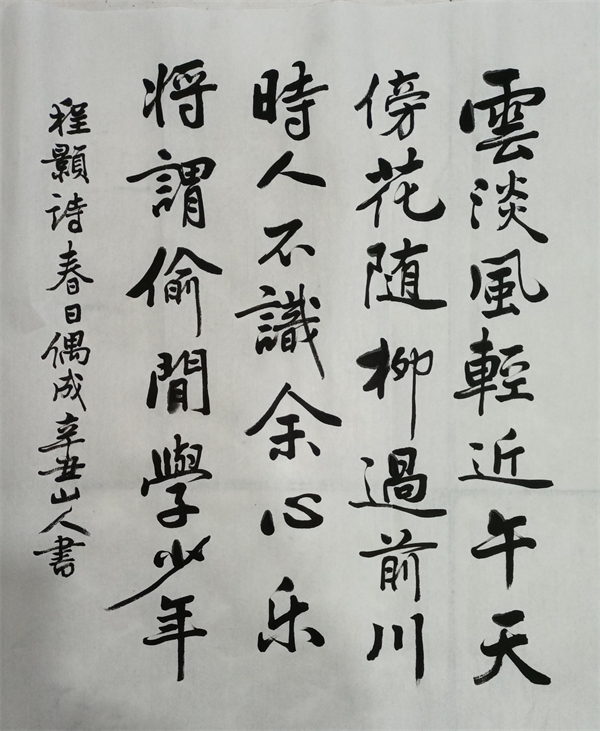 雲淡風輕近午天
傍花随柳過前川
時人不識余心乐
将謂偷閒學少年
程顥诗春日偶成辛丑山人書